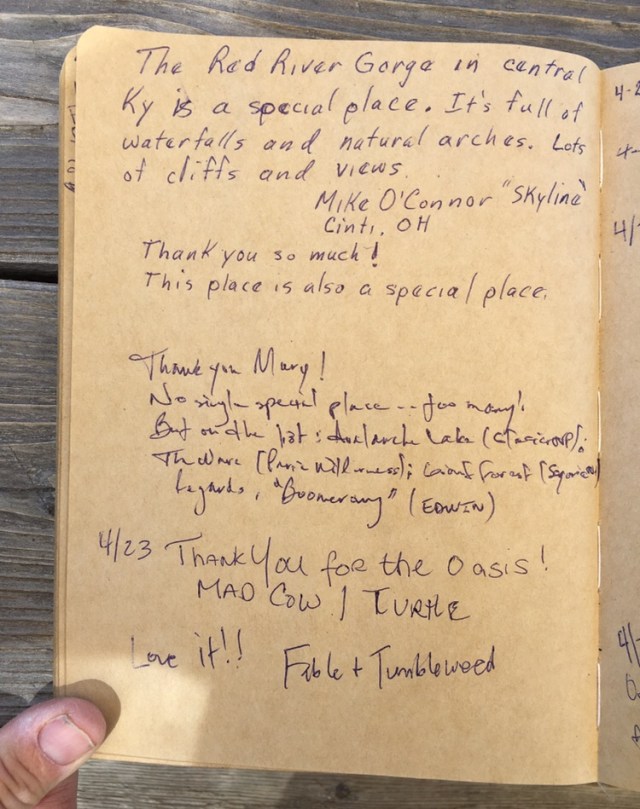 The Red River Gorge in central
Ky is a special place. It's full of
waterfalls and natural arches. Lots
of cliffs and views.
Mike O'Connor "Skyline"
Cinti, OH
Thank you so much!
This place is also a special place.
Thank you Mary!
No single special place -- too many!
But on the list: Avalanche Lake (Glacier NP);
The Wave (Paria Wilderness); Giant Forest (Sequoia
Regards, "Boomerang" (EDWIN)
4/23 Thank You for the Oasis!
MAD COW / TURTLE
Love it!! Fable + Tumbleweed
4/